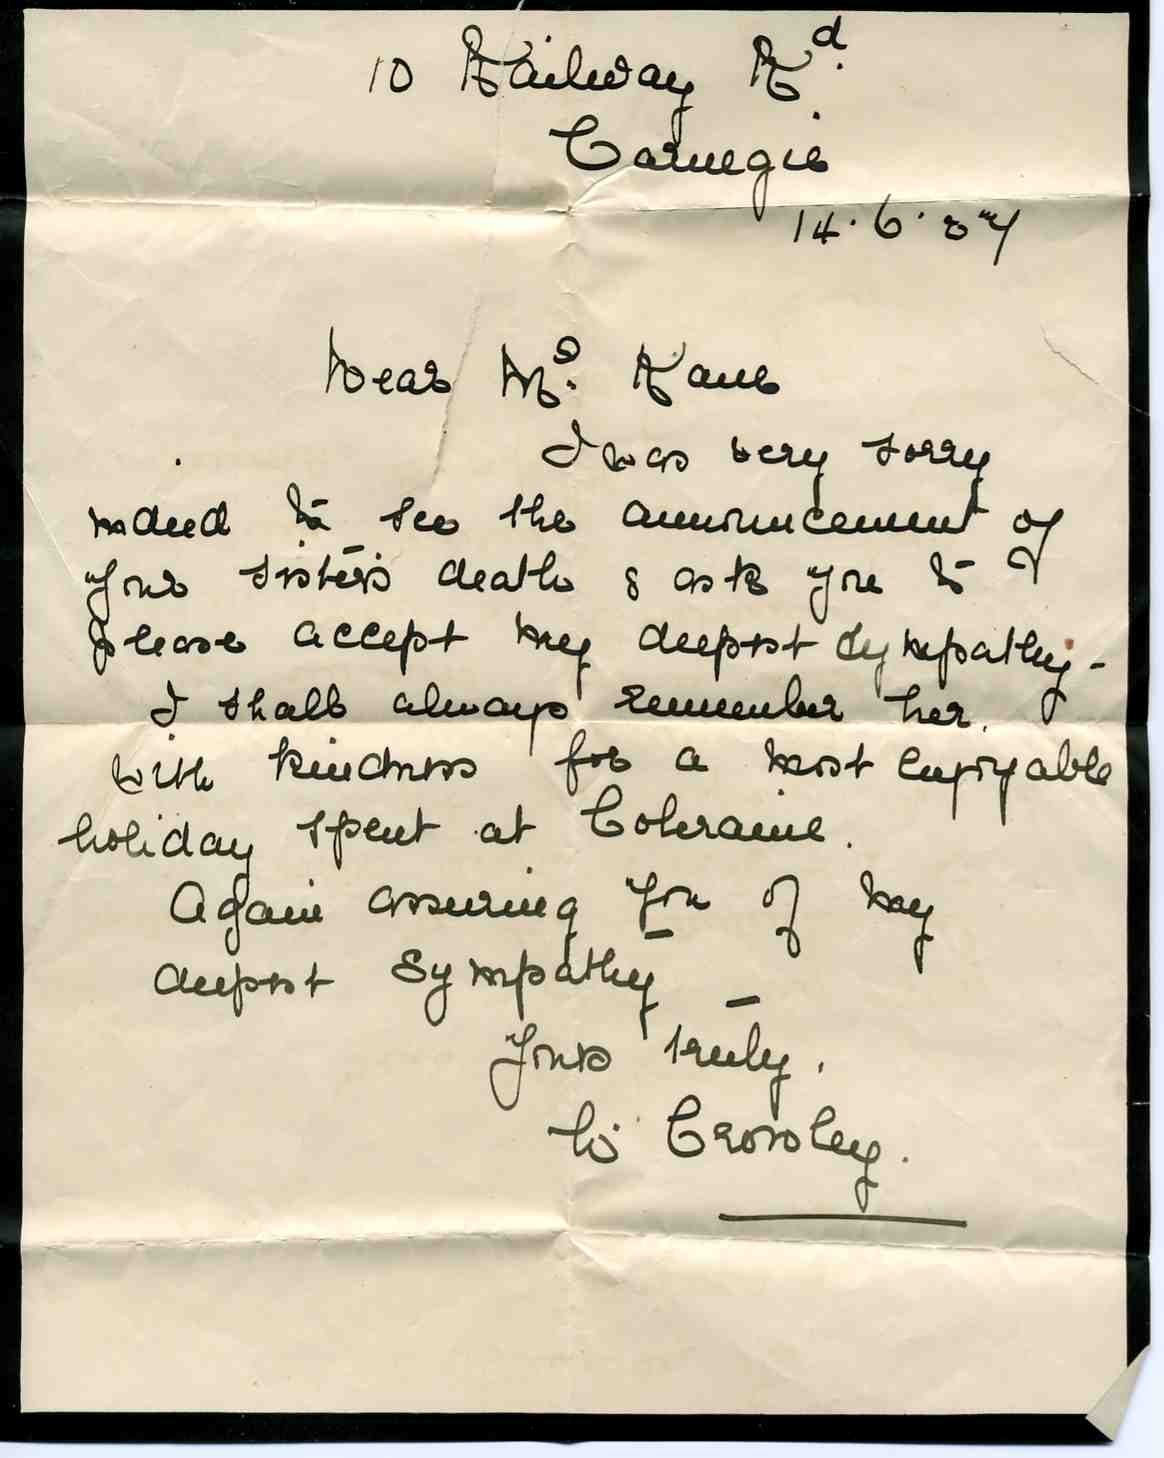 10 Railway Rd.
Carnegie
14.6.37
Dear Mrs. Kane
I was very sorry
indeed to see the announcement of
your sister's death & ask you to
please accept my deepest sympathy -
I shall always remember her
with kindness for a most enjoyable
holiday spent at Coleraine.
Again assuring you of my
deepest sympathy
Yours truly,
W Crowley.